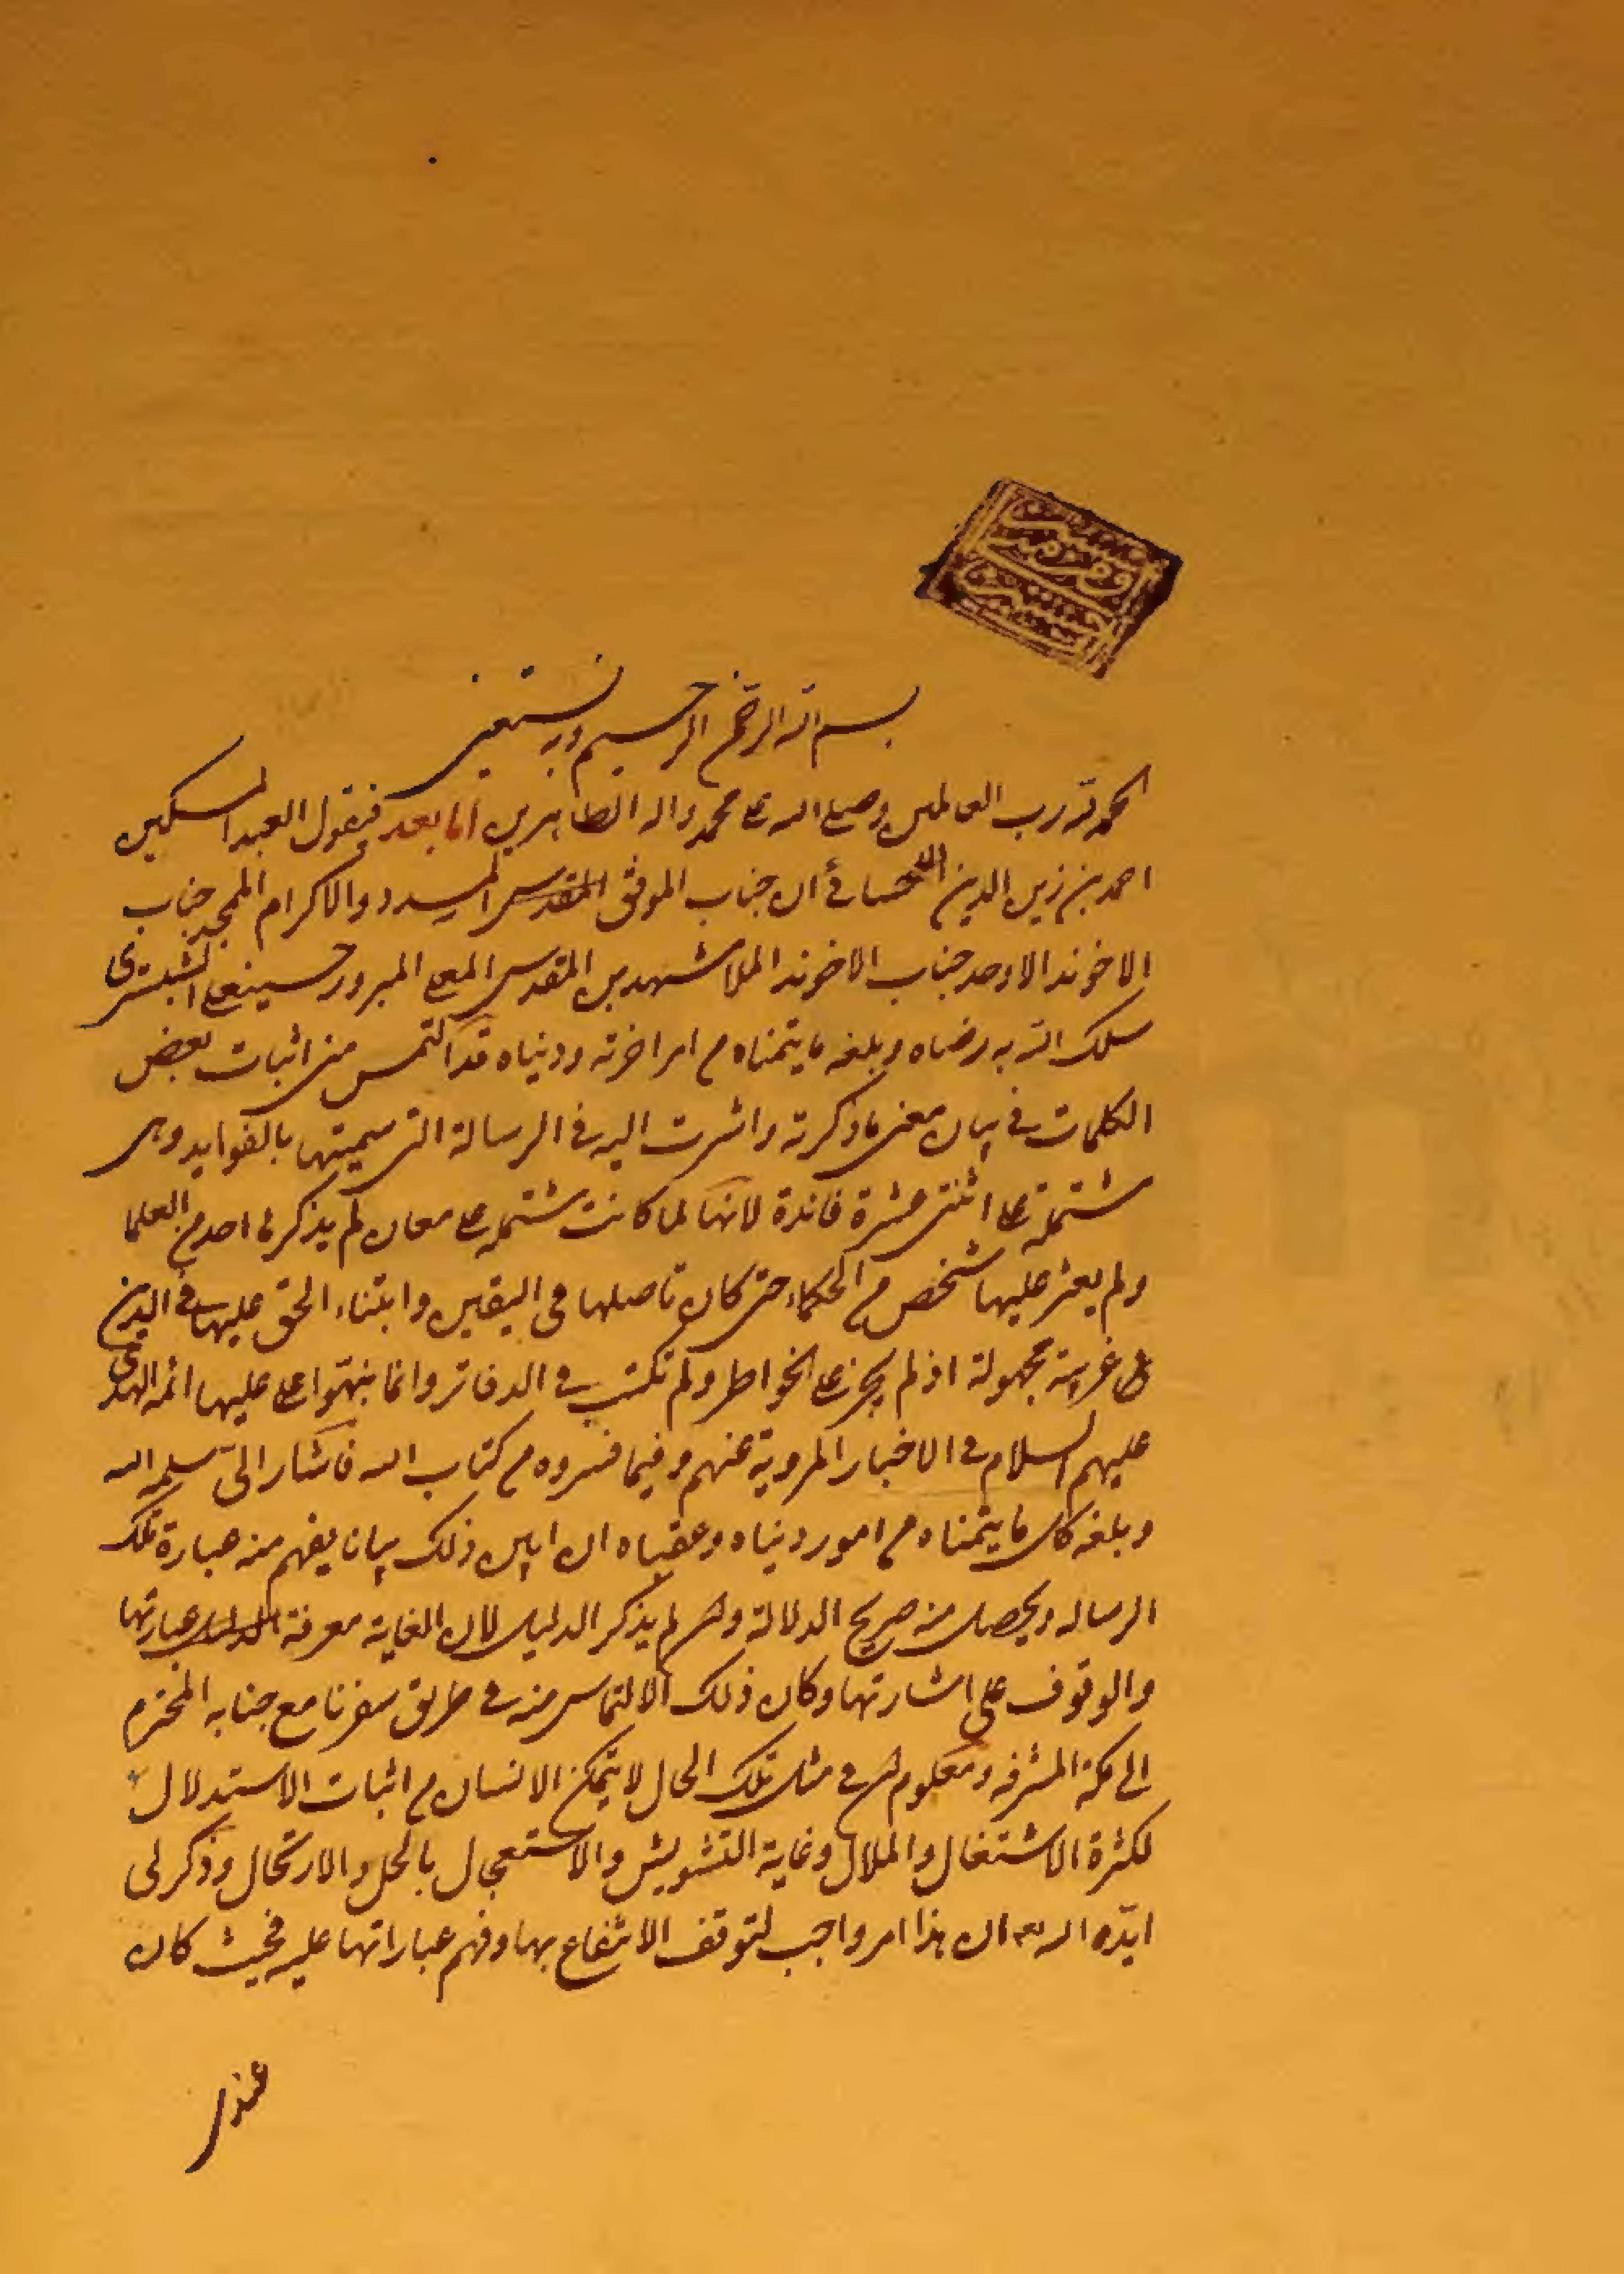 بسم الله الرحمن الرحيم وبه نستعين
الحمد لله رب العالمين وصلى الله على محمد واله الطاهرين اما بعد فيقول العبد المسكين
احمد بن زين الدين الاحسائى ان جناب الموفق المقدس المسدد والاكرام الممجد جناب
الاخوند الاوحد جناب الاخوند الملا مشهد بن المقدس المبرور حسينعلى الشبسترى
سلك الله به رضاه وبلغه ما يتمناه من امر اخرته ودنياه قد التمس منى اثبات بعض
الكلمات فى بيان معنى ما ذكرته واشرت اليه فى الرسالة التى سميتها بالفوايد وهى
مشتملة على اثنتى عشرة فائدة لانها لما كانت مشتملة على معان لم يذكرها احد من العلما
ولم يعثر عليها شخص من الحكماء حتى كان تاصلها فى اليقين وابتناء الحق عليها فى الدين
هى غريبة مجهولة اذ لم يجز على الخواطر ولم تكتب فى الدفاتر وانما نبهوا على عليها ائمه الهدى
عليهم السلام فى الاخبار المروية عنهم وفيما فسروه من كتاب الله فاشار الىّ سلمه الله
وبلغه كل ما يتمناه من امور دنياه وعقباه ان ابين ذلك بيانا يفهم منه عبارة تلك
الرساله ويحصل منه صريح الدلالة وان لم يذكر الدليل لان الغاية معرفة عبارتها
والوقوف على اشارتها وكان ذلك الالتماس منه فى طريق سفرنا مع جنابه المحترم
الى مكة المشرفه ومعلوم ان فى مثل تلك الحال لا يتمكن الانسان من اثبات الاستدلال
لكثرة الاشتغال والملال وغاية التشويش والاستعجال بالحل والارتحال وذكر لى
ايّده الله ان هذا امر واجب لتوقف الانتفاع بها وفهم عباراتها عليه فحيث كان